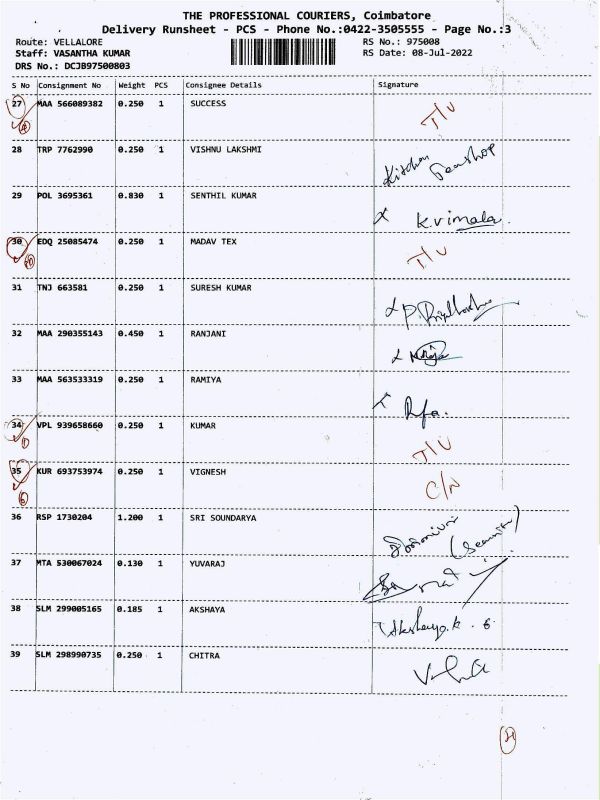 THE PROFESSIONAL COURIERS, Coimbatore
Delivery Runsheet - PCS - Phone No.:0422-3505555 - Page No.:3
Route: VELLALORE RS No.: 975008
Staff: VASANTHA KUMAR RS Date: 08-Jul-2022
DRS No.: DCJB97500803
S No Consignment No Weight PCS Consignee Details Signature
27 MAA 566089382 0.250 1 SUCCESS
28 TRP 7762990 0.250 1 VISHNU LAKSHMI Kitchen
29 POL 3695361 0.830 1 SENTHIL KUMAR K.vimala.
30 EDQ 25085474 0.250 1 MADAV TEX
31 TNJ 663581 0.250 1 SURESH KUMAR
32 MAA 290355143 0.450 1 RANJANI
33 MAA 563533319 0.250 1 RAMIYA
34 VPL 939658660 0.250 1 KUMAR
35 KUR 693753974 0.250 1 VIGNESH C/N
36 RSP 1730204 1.200 1 SRI SOUNDARYA
37 MTA 530067024 0.130 1 YUVARAJ
38 SLM 299005165 0.185 1 AKSHAYA Akshaya.k.
39 SLM 298990735 0.250 1 CHITRA